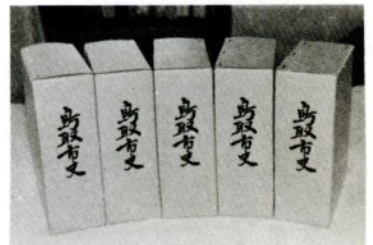 鳥取市史
鳥取市史
鳥取市史
鳥取市史
鳥取市史